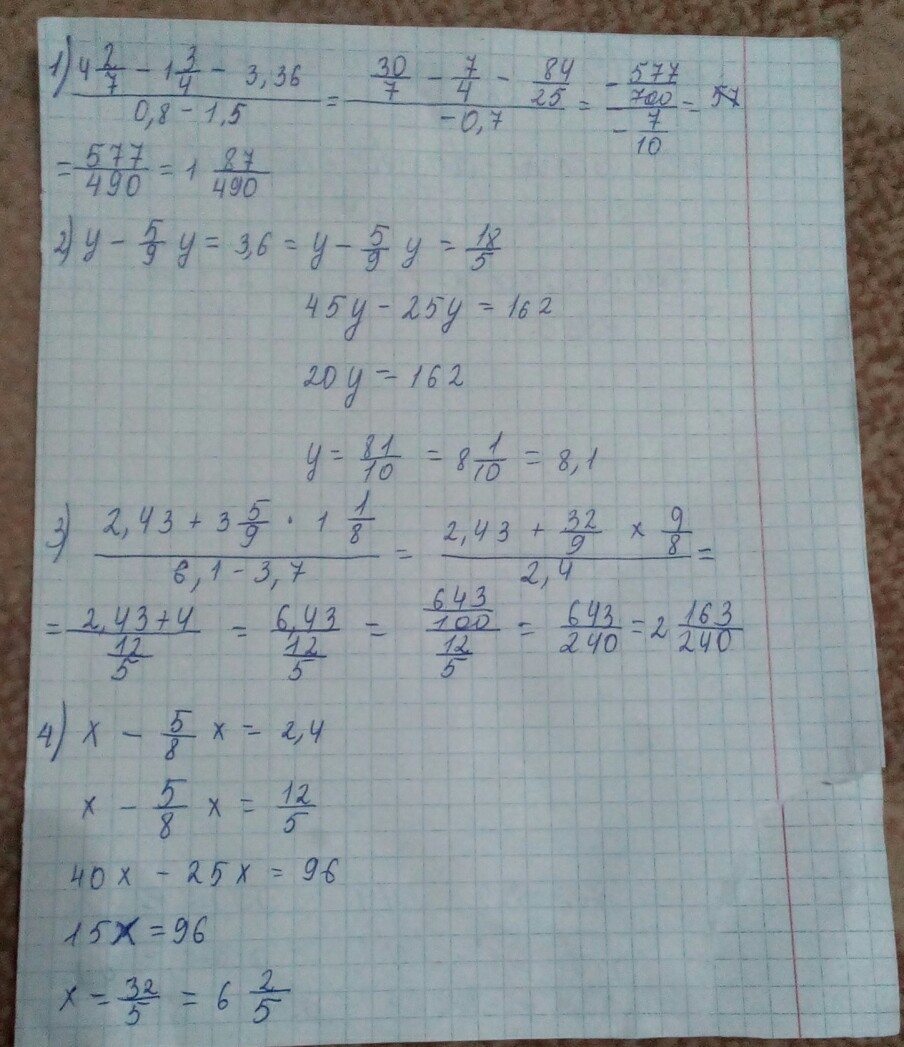 1) (4 2/7 - 1 3/4 - 3,36)/(0,8 - 1,5) = (30/7 - 7/4 - 84/25)/(-0,7) = (-577/700)/(-7/10) = 57
= 577/490 = 1 87/490
2) y - 5/9 y = 3,6 = y - 5/9 y = 18/5
45y - 25y = 162
20y = 162
y = 81/10 = 8 1/10 = 8,1
3) (2,43 + 3 5/9 · 1 1/8)/(6,1 - 3,7) = (2,43 + 32/9 x 9/8)/(2,4) =
= (2,43 + 4)/(12/5) = 6,43/(12/5) = (643/100)/(12/5) = 643/240 = 2 163/240
4) x - 5/8 x = 2,4
x - 5/8 x = 12/5
40x - 25x = 96
15x = 96
x = 32/5 = 6 2/5